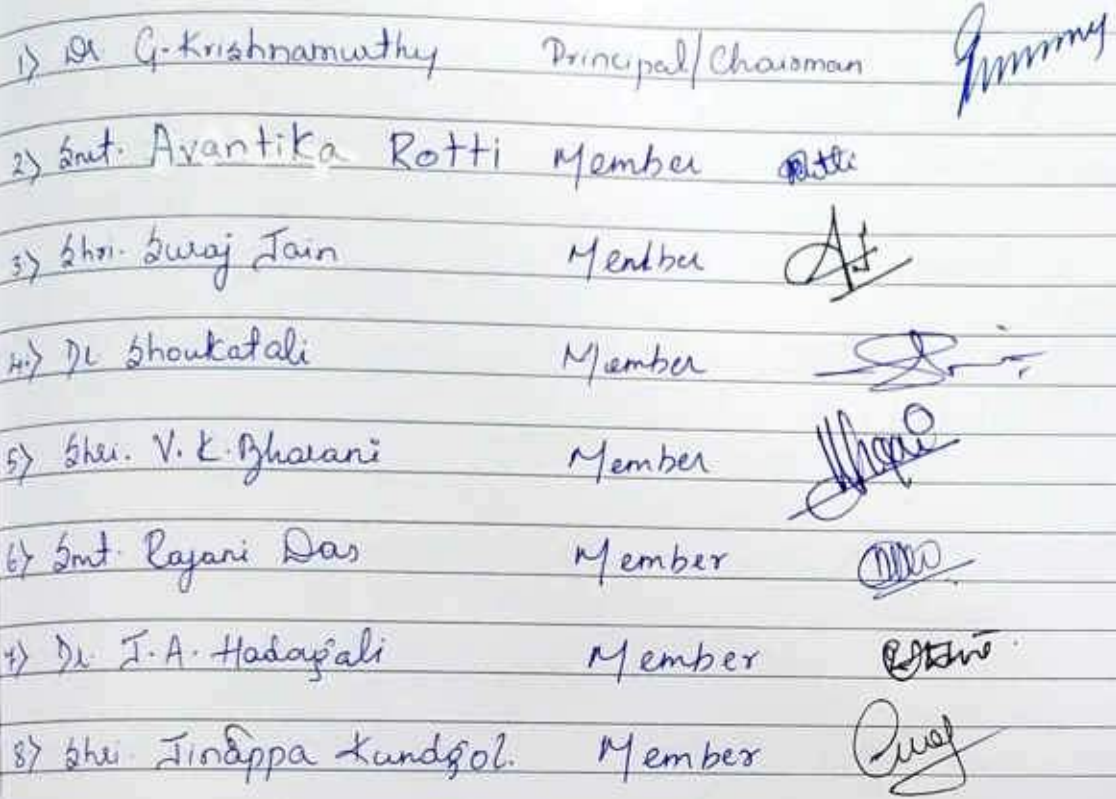 1) Dr G. Krishnamurthy Principal/Chairman
2) Smt. Avantika Rotti Member Rotti
3) Shri. Suraj Jain Member
4.) Dr Shoukatali Member
5) Shri. V. K. Bharani Member
6) Smt. Rajani Das Member
7) Dr. J. A. Hadagali Member
8) Shri. Jinappa Kundgol. Member